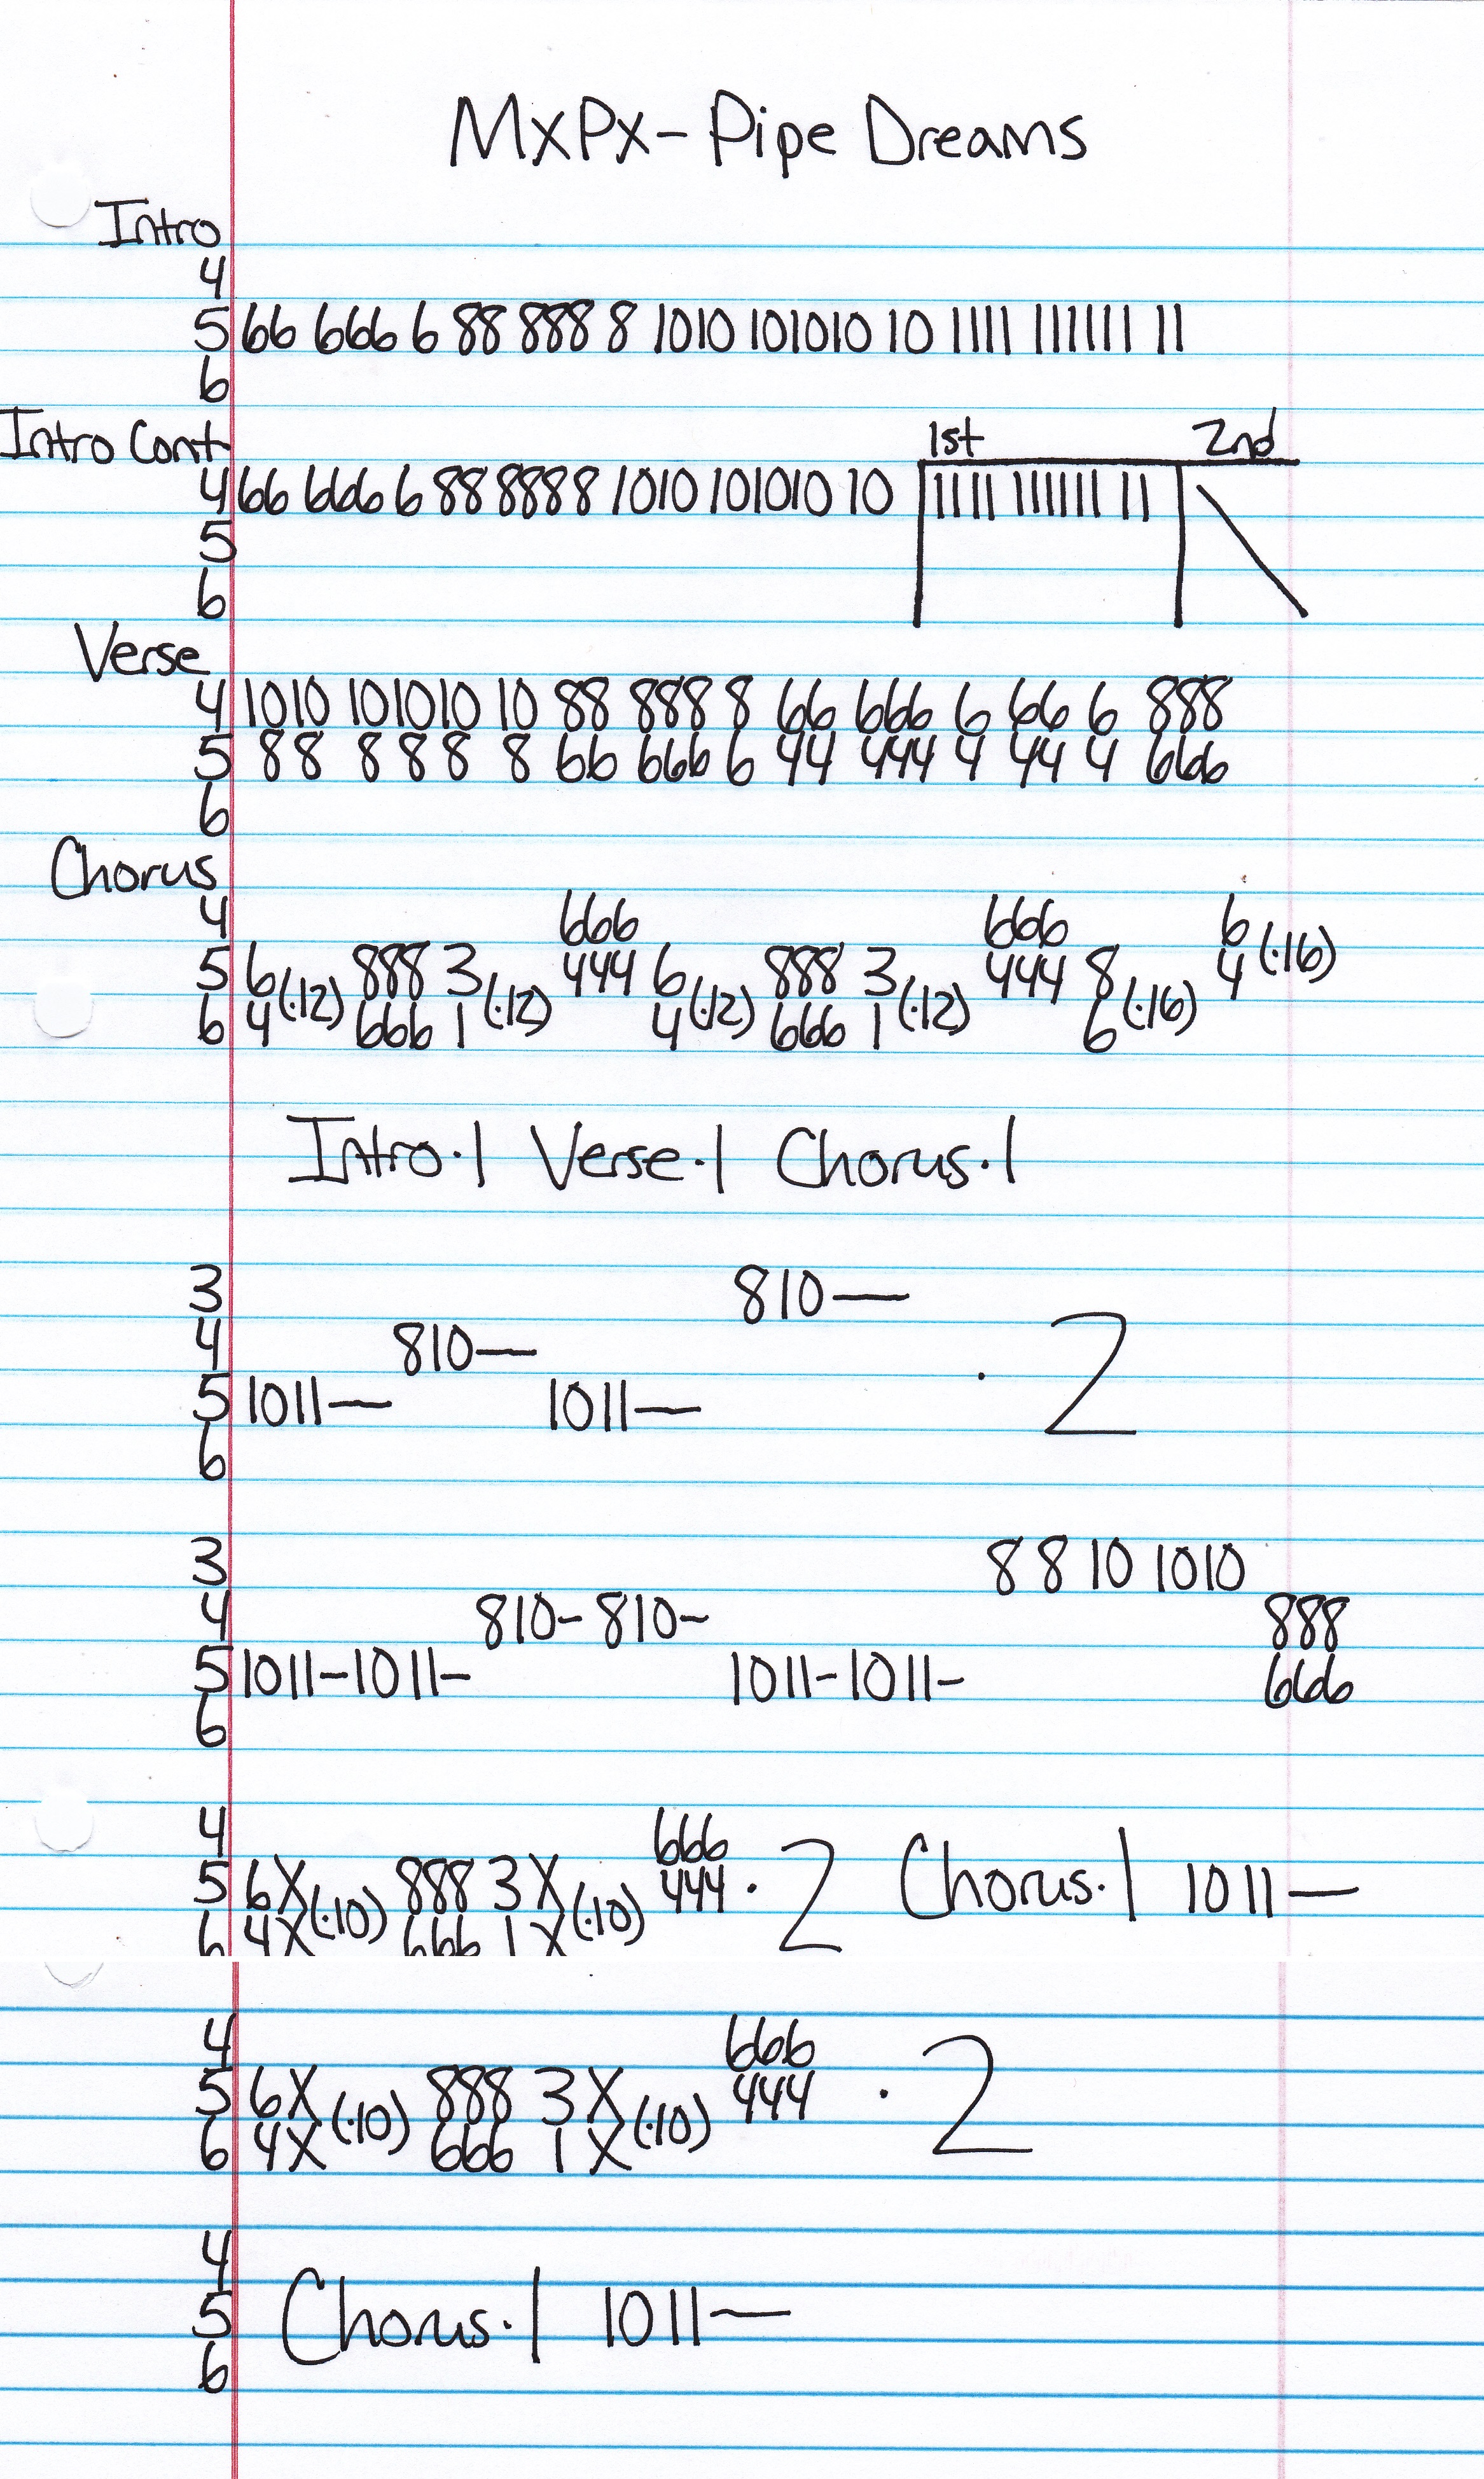 MXPX- Pipe Dreams
Intro
4
5 66 666 6 88 888 8 1010 101010 10 1111 111111 11
6
Intro Cont 1st 2nd
4 66 666 6 88 8888 1010 101010 10 1111 111111 11
5
6
Verse
4 1010 101010 10 88 888 8 66 666 6 66 6 888
5 88 8 8 8 8 66 666 6 44 444 4 44 4 666
6
Chorus
4 666 666 6
5 6 (·12) 888 3 (·12) 444 6 (·12) 888 3 (·12) 444 8 (·16) 4 (·16)
6 4 666 1 4 666 1 6
Intro·1 Verse·1 Chorus·1
3 810—
4 810— · 2
5 1011— 1011—
6
3 8 8 10 1010
4 810- 810- 888
5 1011-1011- 1011-1011- 666
6
4 666
5 6X (·10) 888 3X (·10) 444 · 2 Chorus·1 1011—
6 4X 666 1X
4 666
5 6X (·10) 888 3X (·10) 444 · 2
6 4X 666 1X
4
5 Chorus·1 1011—
6